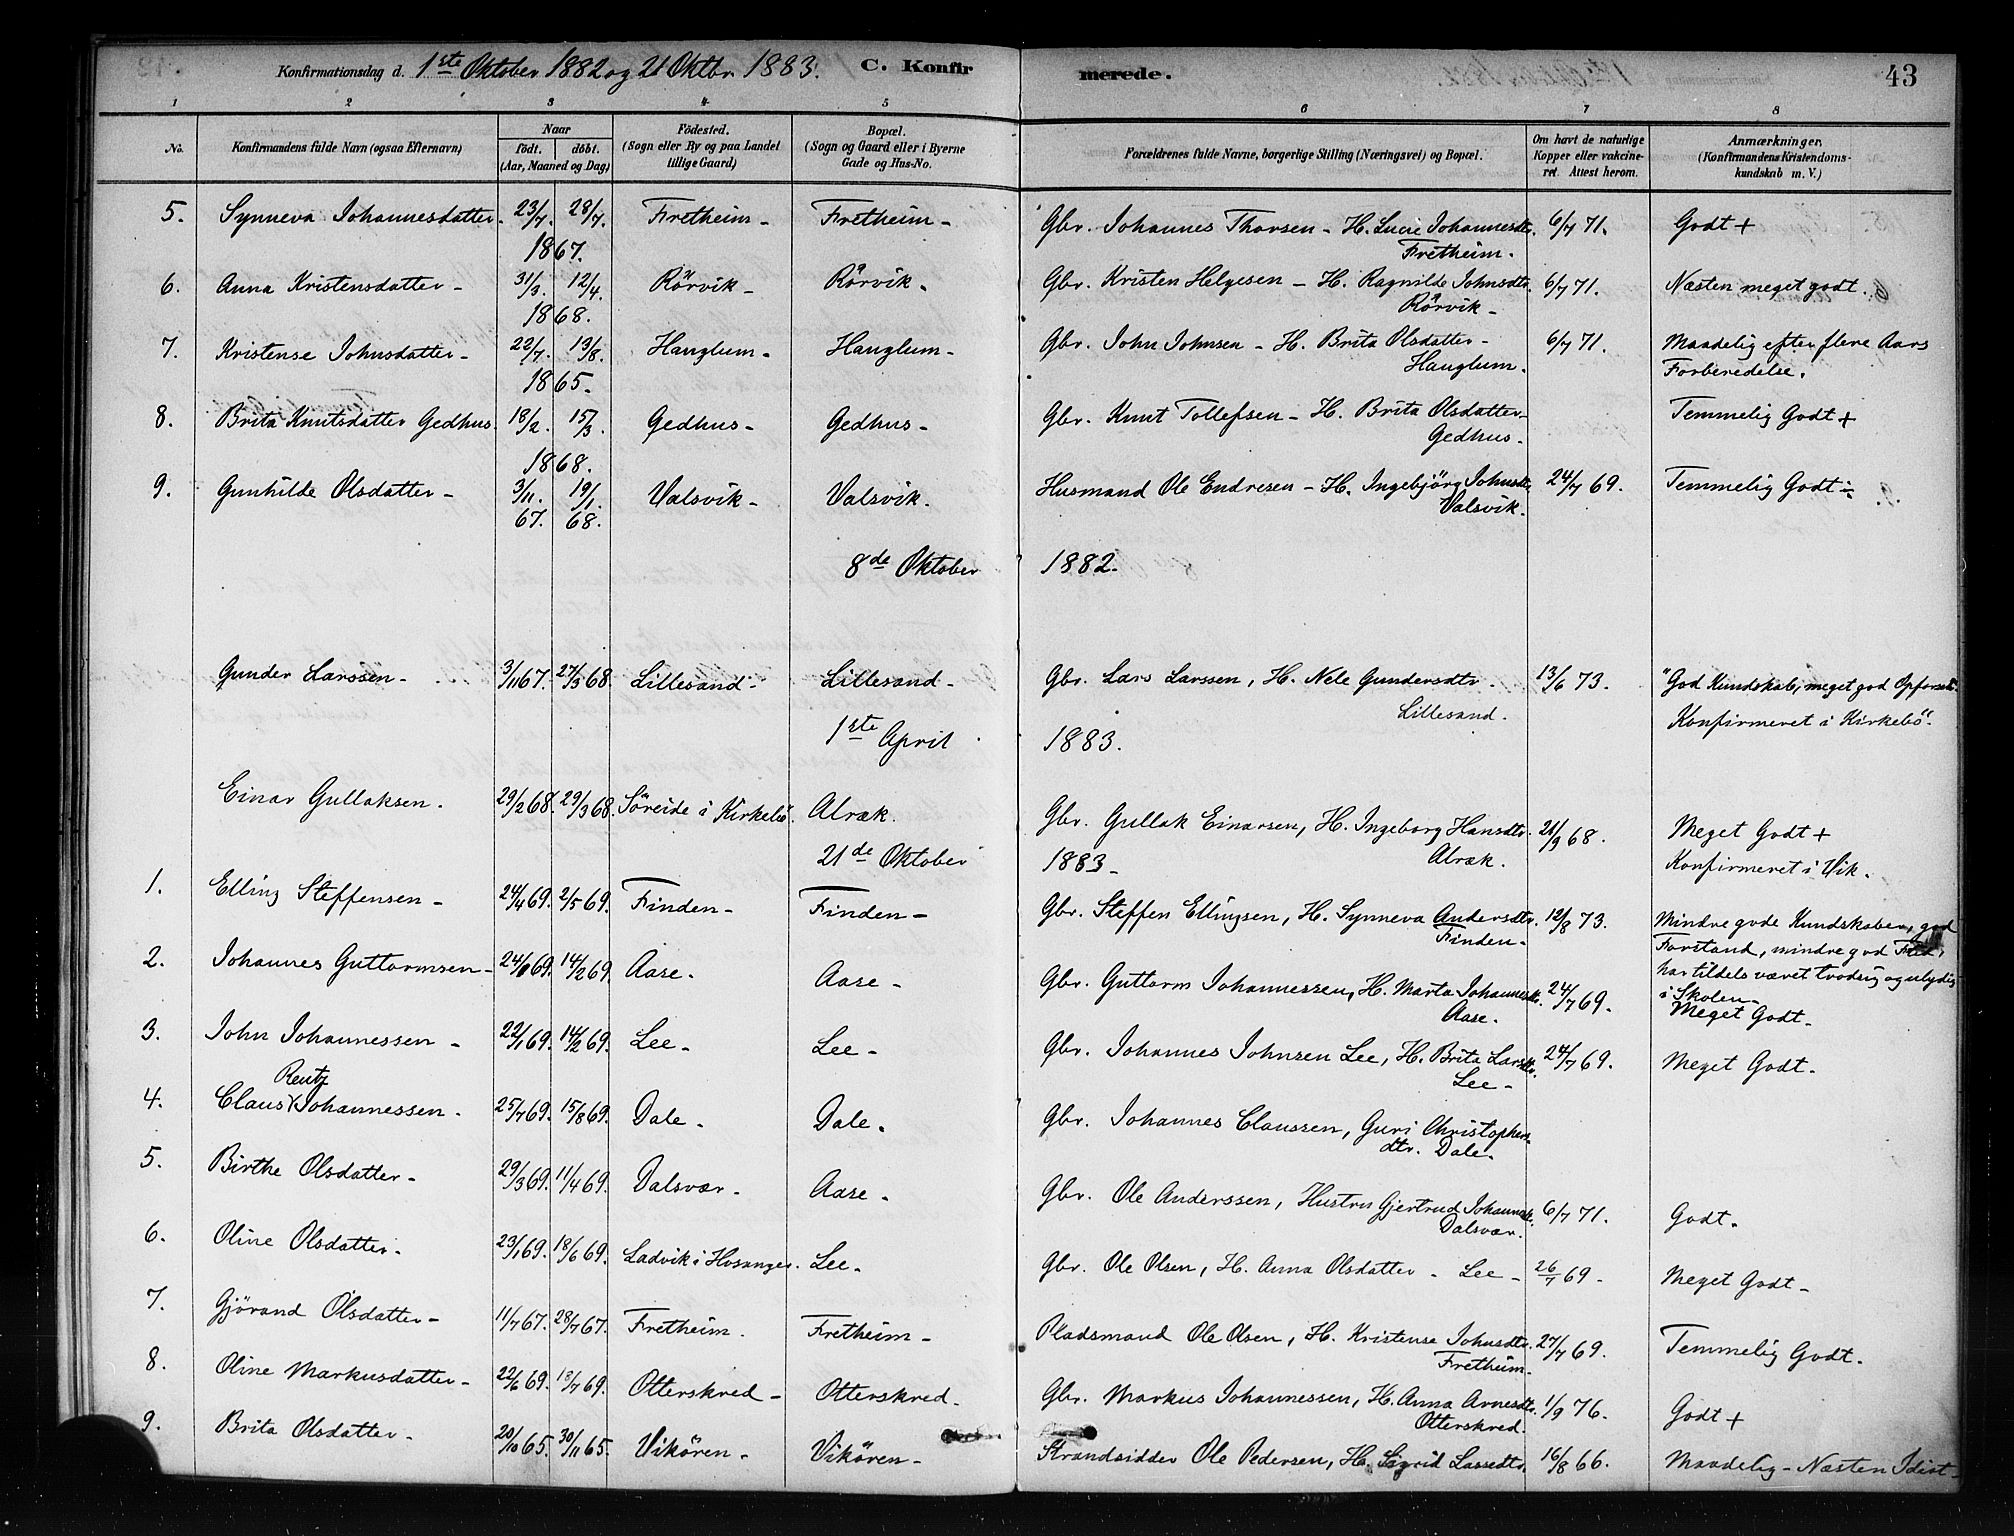 Konfirmationsdag d. 1ste Oktober 1882 og 21 Oktbr. 1883. C. Konfirmerede. 43
1 2 3 4 5 6 7 8
No. Konfirmandens fulde Navn (ogsaa Efternavn) Naar födt. döbt. (Aar, Maaned og Dag) Födested. (Sogn eller By og paa Landet tillige Gaard) Bopæl. (Sogn og Gaard eller i Byerne Gade og Hus-No. Forældrenes fulde Navne, borgerlige Stilling (Næringsvei) og Bopæl. Om havt de naturlige Kopper eller vakcineret. Attest herom. Anmærkninger. (Konfirmandens Kristendomskundskab m. V.)
5. Synneva Johannesdatter. 23/7. 28/7. Fretheim - Fretheim - Gbr. Johannes Thorsen - H. Lucie Johannesdtr. 6/7 71. Godt +
1867. Fretheim.
6. Anna Kristensdatter - 31/3. 12/4. Rörvik - Rörvik. Gbr. Kristen Helgesen - H. Ragnilde Johnsdtr. 6/7 71. Næsten meget godt.
1868. Rörvik -
7. Kristense Johnsdatter - 22/7. 13/8. Hanglum - Hanglum - Gbr. John Johnsen - H. Brita Olsdatter - 6/7 71. Maadelig efter flere Aars
1865. Hanglum. Forberedelse.
8. Brita Knutsdatter Gedhus. 18/2. 15/3. Gedhus - Gedhus - Gbr. Knut Tollefsen - H. Brita Olsdatter - Temmelig Godt +
1868. Gedhus.
9. Gunhilde Olsdatter - 3/11. 19/1. Valsvik - Valsvik. Husmand Ole Endresen - H. Ingebjörg Johnsdtr. 24/7 69. Temmelig Godt ÷
67. 68. Valsvik.
8de Oktober 1882.
Gunder Larssen - 3/11 67. 27/3 68. Lillesand - Lillesand - Gbr. Lars Larssen, H. Nele Gundersdtr. 13/6 73. "God Kundskab, meget god Opførsel.
Lillesand. Konfirmeret i Kirkebö".
1ste April 1883.
Einar Gullaksen. 29/2 68. 29/3 68. Söreide i Kirkebö. Alræk. Gbr. Gullak Einarsen, H. Ingeborg Hansdtr. 21/9 68. Meget Godt +
Alræk. Konfirmeret i Vik.
21de Oktober 1883 -
1. Elling Steffensen - 24/4 69. 2/5 69. Finden - Finden - Gbr. Steffen Ellingsen, H. Synneva Andersdtr. 12/8 73. Mindre gode Kundskaber, god
Finden - Forstand, mindre god Flid,
har tildels været trodsig og ulydig
i Skolen -
2. Johannes Guttormsen - 14/2 69. Aase. Aase - Gbr. Guttorm Johannessen, H. Marta Johannesdtr. 24/7 69. Meget Godt.
Aase.
3. John Johannessen - 22/1 69. 14/2 69. Lee - Lee - Gbr. Johannes Johnsen Lee, H. Brita Larsdtr. 24/7 69. Meget Godt.
Lee -
Reutz
4. Claus Johannessen. 25/7 69. 15/8 69. Dale. Dale. Gbr. Johannes Claussen, Guri Christophers-
dtr. Dale.
5. Birthe Olsdatter - 29/3 69. 11/4 69. Dalsvær. Aase - Gbr. Ole Anderssen, Hustru Gjertrud Johannesdtr. 6/7 71. Godt.
Dalsvær.
6. Oline Olsdatter. 23/1 69. 18/6 69. Ladvik i Hosanger. Lee - Gbr. Ole Olsen, H. Anna Olsdatter - Lee - 26/7 69 - Meget Godt -
7. Gjörand Olsdatter - 11/7 67. 28/7 67. Fretheim. Fretheim - Pladsmand Ole Olsen, H. Kristense Johnsdtr. 27/7 69. Temmelig Godt.
Fretheim
8. Oline Markusdatter - 22/6 69. 18/7 69. Otterskred - Otterskred. Gbr. Markus Johannessen, H. Anna Arnesdtr. 1/9 76. Godt +
Otterskred.
9. Brita Olsdatter. 20/10 65. 30/11 65. Vikören. Vikören - Strandsidder Ole Pedersen, H. Sigrid Lassedtr. 16/8 66. Maadelig - Næsten Idiot -